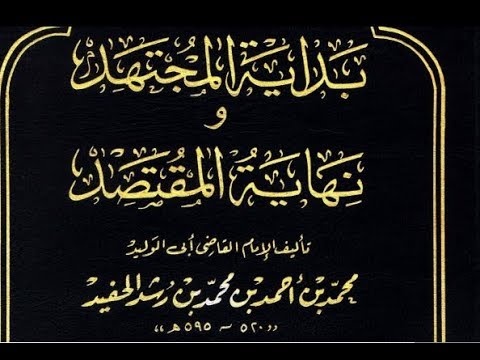 بَدَايَة المُجتَهِد
و
نِهَايَةُ المُقتَصِد
تأليف الإمام القاضى أبى الوليد
محمّد بن أحمد بن محمّد بن رشد الحفيد
«٥٢٠ – ٥٩٥ هـ»